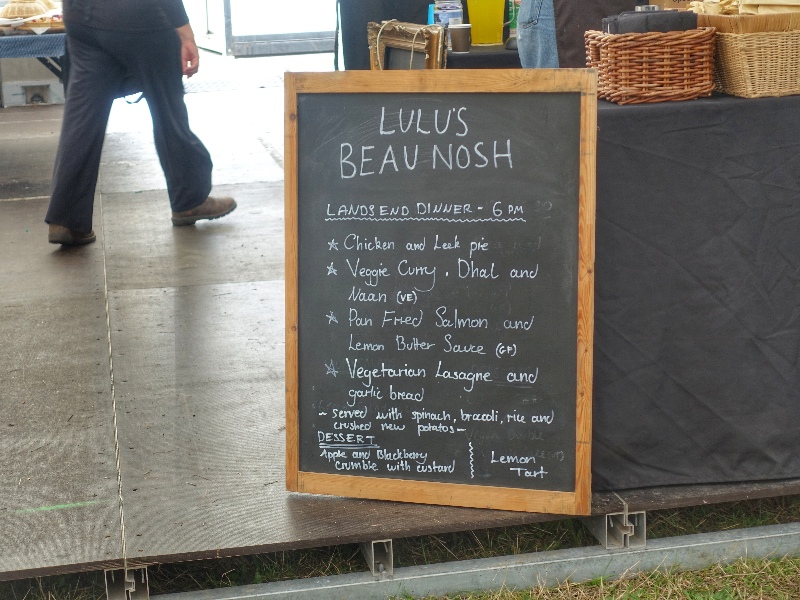 LULU'S
BEAU NOSH
LANDSEND DINNER - 6 PM
☆ Chicken and Leek pie
☆ Veggie Curry, Dhal and
Naan (VE)
☆ Pan Fried Salmon and
Lemon Butter Sauce (GF)
☆ Vegetarian Lasagne and
garlic bread
~ served with spinach, broccoli, rice and
crushed new potatos ~
DESSERT
Apple and Blackberry
crumble with custard
Lemon
Tart